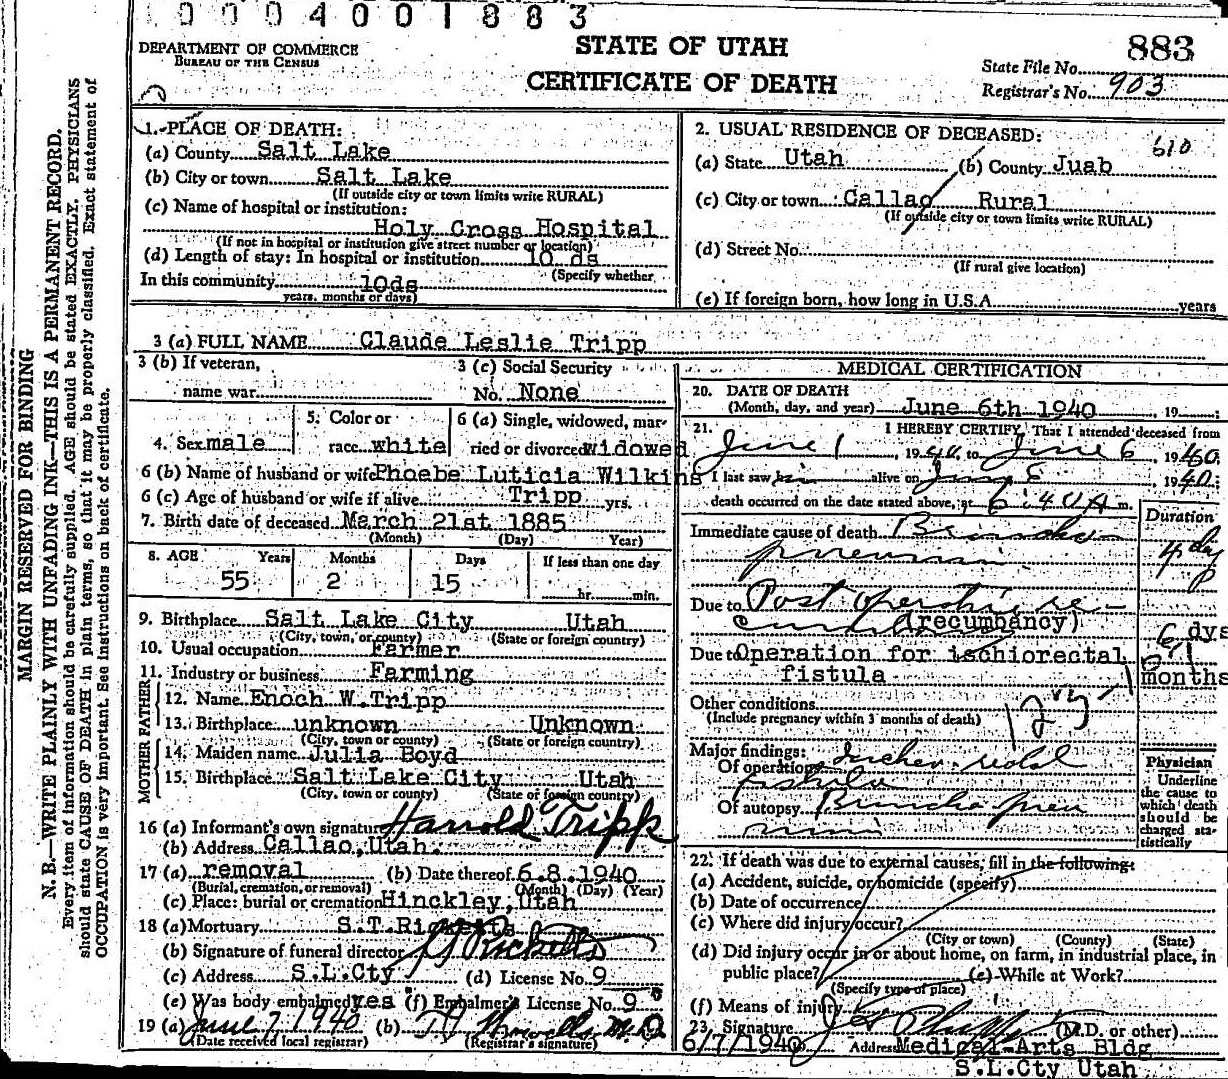 0004001883
DEPARTMENT OF COMMERCE
BUREAU OF THE CENSUS
STATE OF UTAH
CERTIFICATE OF DEATH
883
State File No.
Registrar's No. 903
MARGIN RESERVED FOR BINDING
N. B.—WRITE PLAINLY WITH UNFADING INK—THIS IS A PERMANENT RECORD.
Every item of information should be carefully supplied. AGE should be stated EXACTLY. PHYSICIANS
should state CAUSE OF DEATH in plain terms, so that it may be properly classified. Exact statement of
OCCUPATION is very important. See instructions on back of certificate.
1. PLACE OF DEATH:
(a) County Salt Lake
(b) City or town Salt Lake
(If outside city or town limits write RURAL)
(c) Name of hospital or institution:
Holy Cross Hospital
(If not in hospital or institution give street number or location)
(d) Length of stay: In hospital or institution 10 ds
(Specify whether
In this community 10ds
years, months or days)
2. USUAL RESIDENCE OF DECEASED:
610
(a) State Utah (b) County Juab
(c) City or town Callao Rural
(If outside city or town limits write RURAL)
(d) Street No.
(If rural give location)
(e) If foreign born, how long in U.S.A. years
3 (a) FULL NAME Claude Leslie Tripp
3 (b) If veteran,
name war
3 (c) Social Security
No. None
4. Sex male
5. Color or
race white
6 (a) Single, widowed, mar-
ried or divorced widowed
6 (b) Name of husband or wife Phoebe Luticia Wilkins
6 (c) Age of husband or wife if alive Tripp yrs.
7. Birth date of deceased March 21st 1885
(Month) (Day) Year)
8. AGE Years Months Days If less than one day
55 2 15 hr. min.
9. Birthplace Salt Lake City Utah
(City, town, or county) (State or foreign country)
10. Usual occupation Farmer
11. Industry or business Farming
FATHER
12. Name Enoch W.Tripp
13. Birthplace unknown Unknown
(City, town or county) (State or foreign country)
MOTHER
14. Maiden name Julia Boyd
15. Birthplace Salt Lake City Utah
(City, town or county) (State or foreign country)
16 (a) Informant's own signature Harrold Tripp
(b) Address Callao, Utah.
17 (a) removal (b) Date thereof 6.8.1940
(Burial, cremation, or removal) (Month) (Day) (Year)
(c) Place: burial or cremation Hinckley, Utah
18 (a) Mortuary S.T.Ricketts
(b) Signature of funeral director Ricketts
(c) Address S.L.Cty (d) License No. 9
(e) Was body embalmed yes (f) Embalmer's License No. 9
19 (a) June 7, 1940 (b) M.D.
(Date received local registrar) (Registrar's signature)
MEDICAL CERTIFICATION
20. DATE OF DEATH
(Month, day, and year) June 6th 1940, 19
21. I HEREBY CERTIFY, That I attended deceased from
June 1, 1940, to June 6, 1940.
I last saw him alive on June 5, 1940.;
death occurred on the date stated above, at 6:40 A m.
Duration
Immediate cause of death Broncho
pneumonia 4 day
Due to Post operative re-
cumbancy (recumbancy) 6 dys
Due to Operation for ischiorectal
fistula months
Other conditions
(Include pregnancy within 3 months of death)
Major findings:
Of operation Ischio-rectal
fistula
Of autopsy Broncho pneu
monia
Physician
Underline
the cause to
which death
should be
charged sta-
tistically
22. If death was due to external causes, fill in the following:
(a) Accident, suicide, or homicide (specify)
(b) Date of occurrence
(c) Where did injury occur?
(City or town) (County) (State)
(d) Did injury occur in or about home, on farm, in industrial place, in
public place? (e) While at Work?
(Specify type of place)
(f) Means of injury
23. Signature (M.D. or other)
6/7/1940 Address Medical-Arts Bldg
S.L.Cty Utah